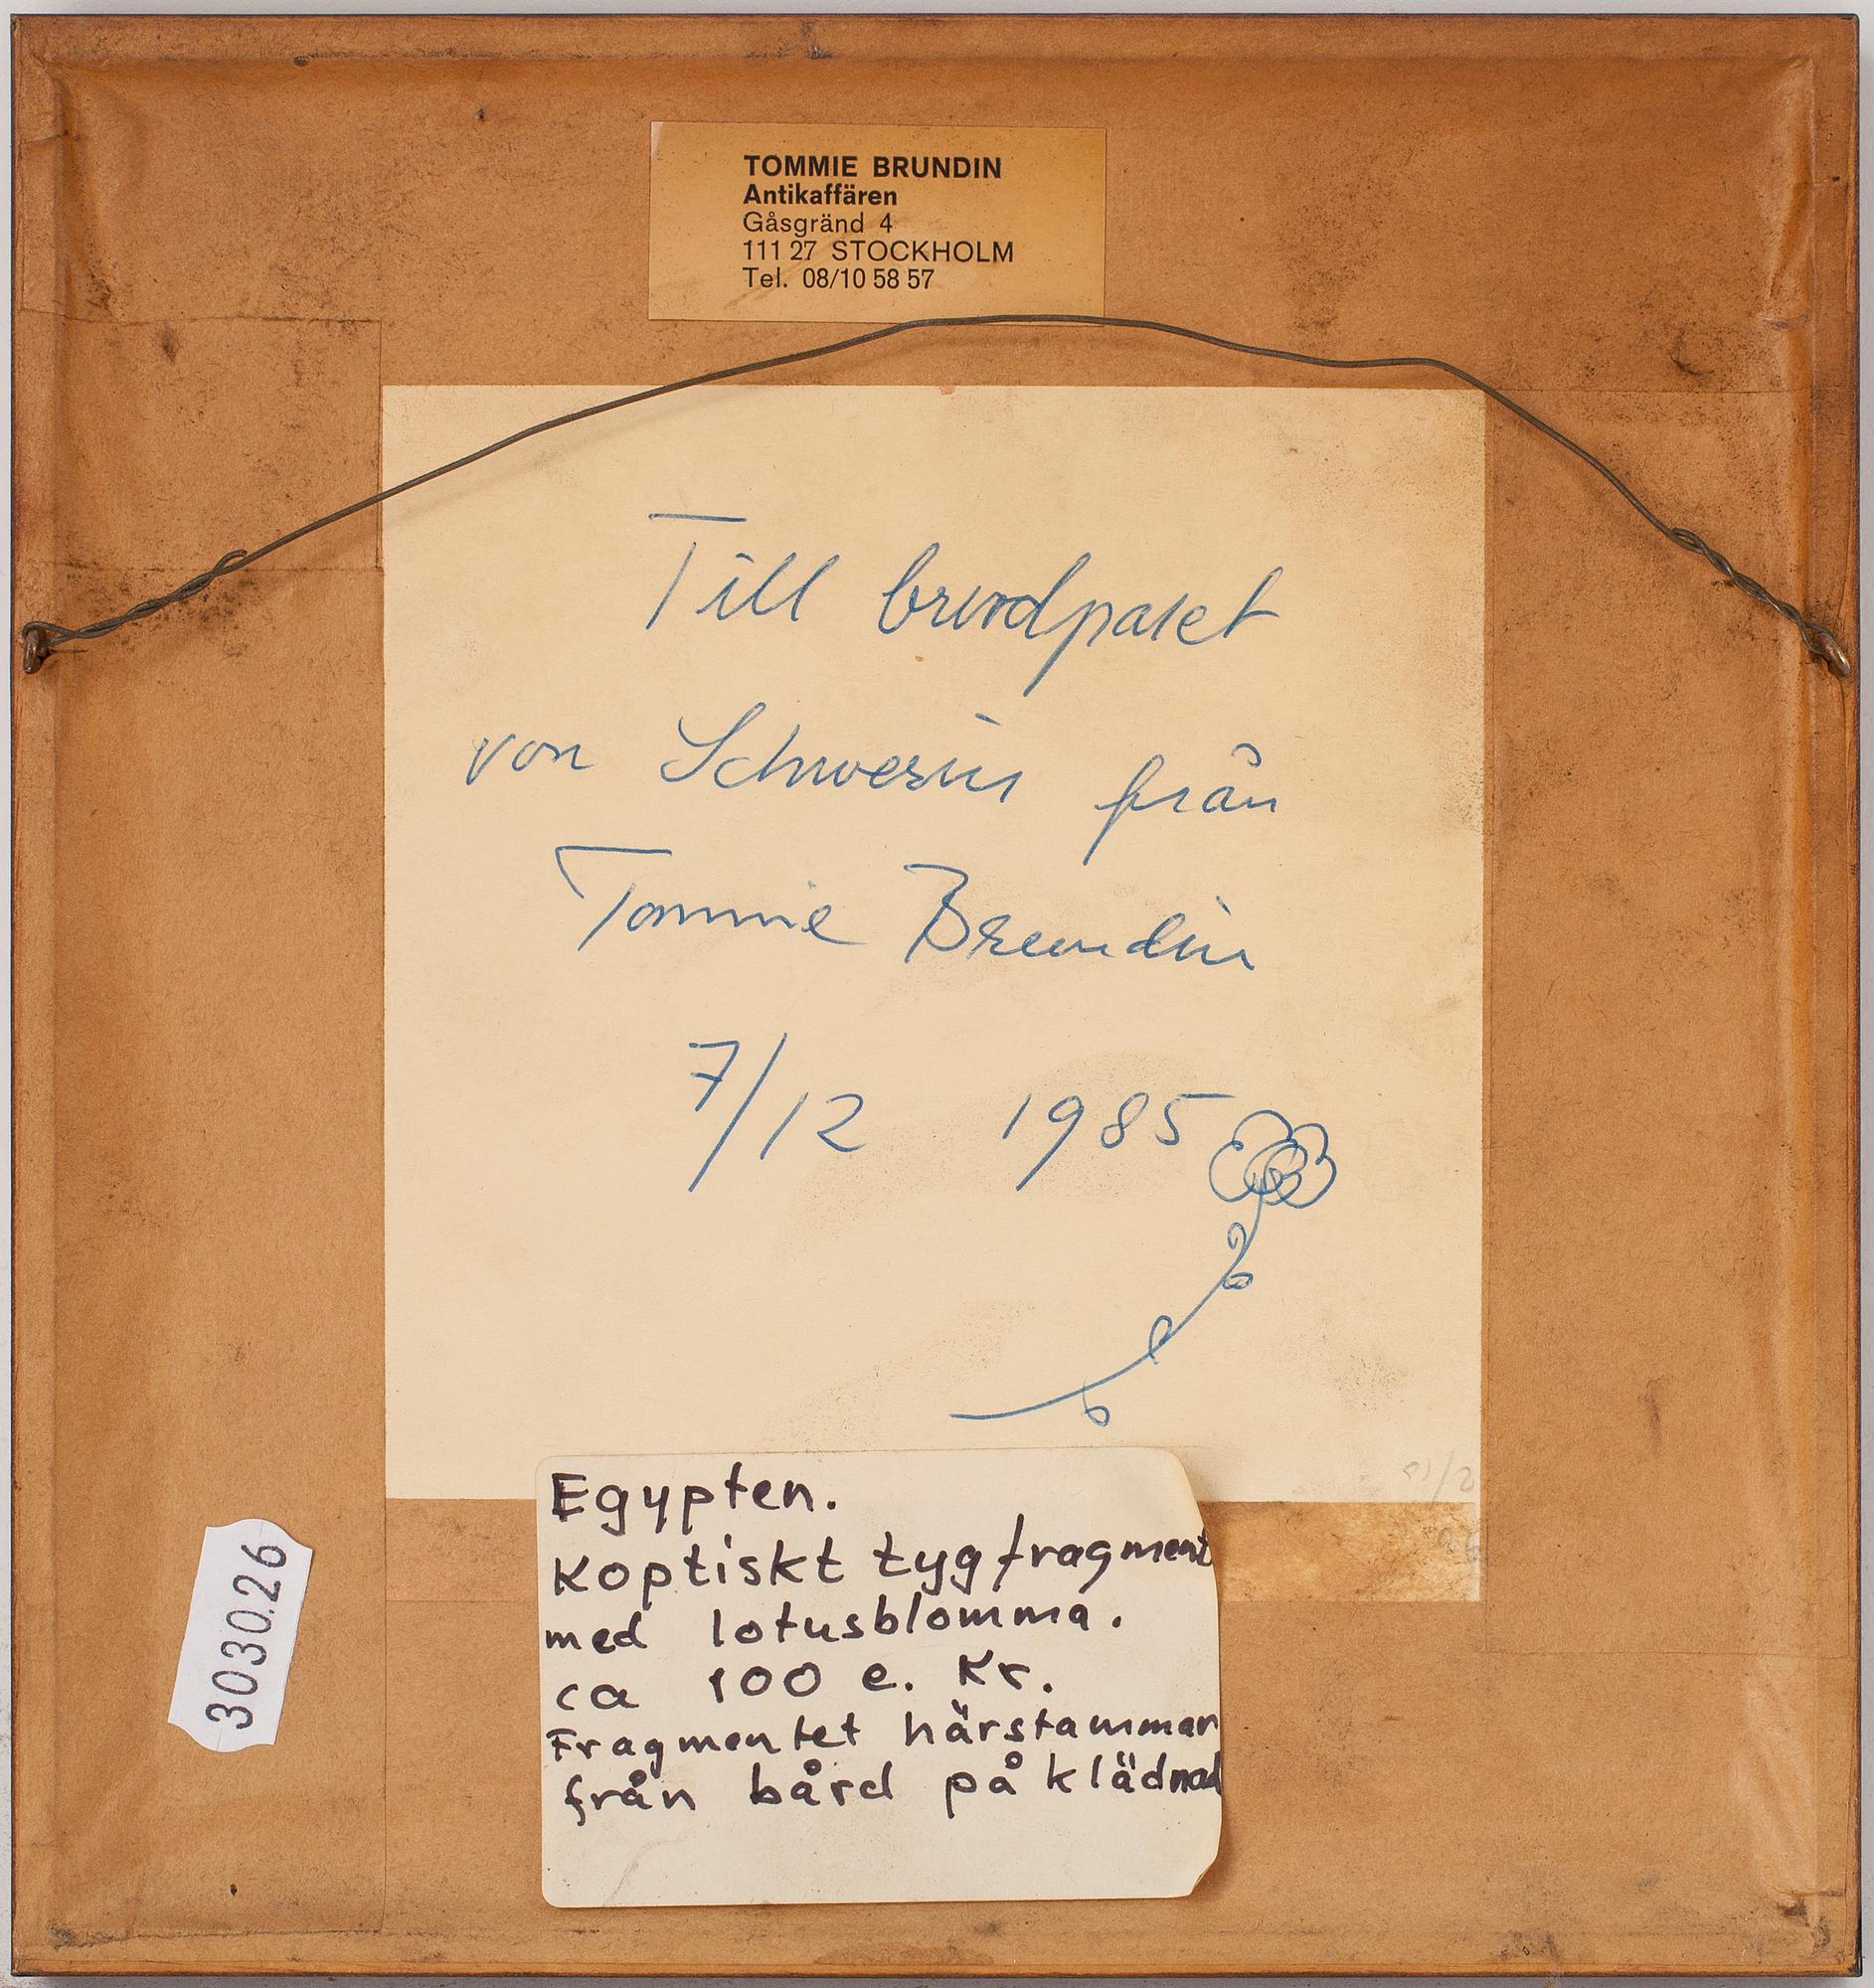 TOMMIE BRUNDIN
Antikaffären
Gåsgränd 4
111 27 STOCKHOLM
Tel. 08/10 58 57
Till brudparet
von Schwerin från
Tommie Brundin
7/12 1985
Egypten.
Koptiskt tygfragment
med lotusblomma.
ca 100 e. Kr.
Fragmentet härstammar
från bård på klädnad
303026